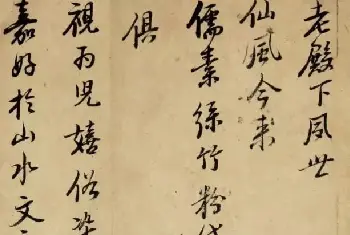 老殿下風世
仙風今来
儒素絲竹粉
俱
視为兒嬉俗染
嘉好於山水文